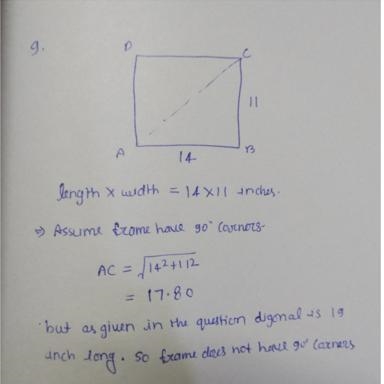 9.
D C
11
A 14 B
length x width = 14 x 11 inches.
⇒ Assume frame have 90° Corners.
AC = √14²+11²
= 17.80
but as given in the question digonal is 19
inch long. So frame does not have 90° Corners